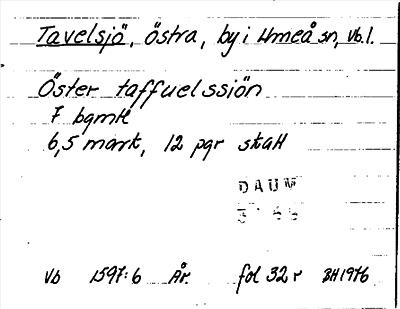 Tavelsjö, Östra, by i Umeå sn, Vb.l.
Öster taffuelssiön
7 bgmk
6,5 mark, 12 pgr skatt
DAUM
Vb 1597:6 År. fol 32 r BH 1976